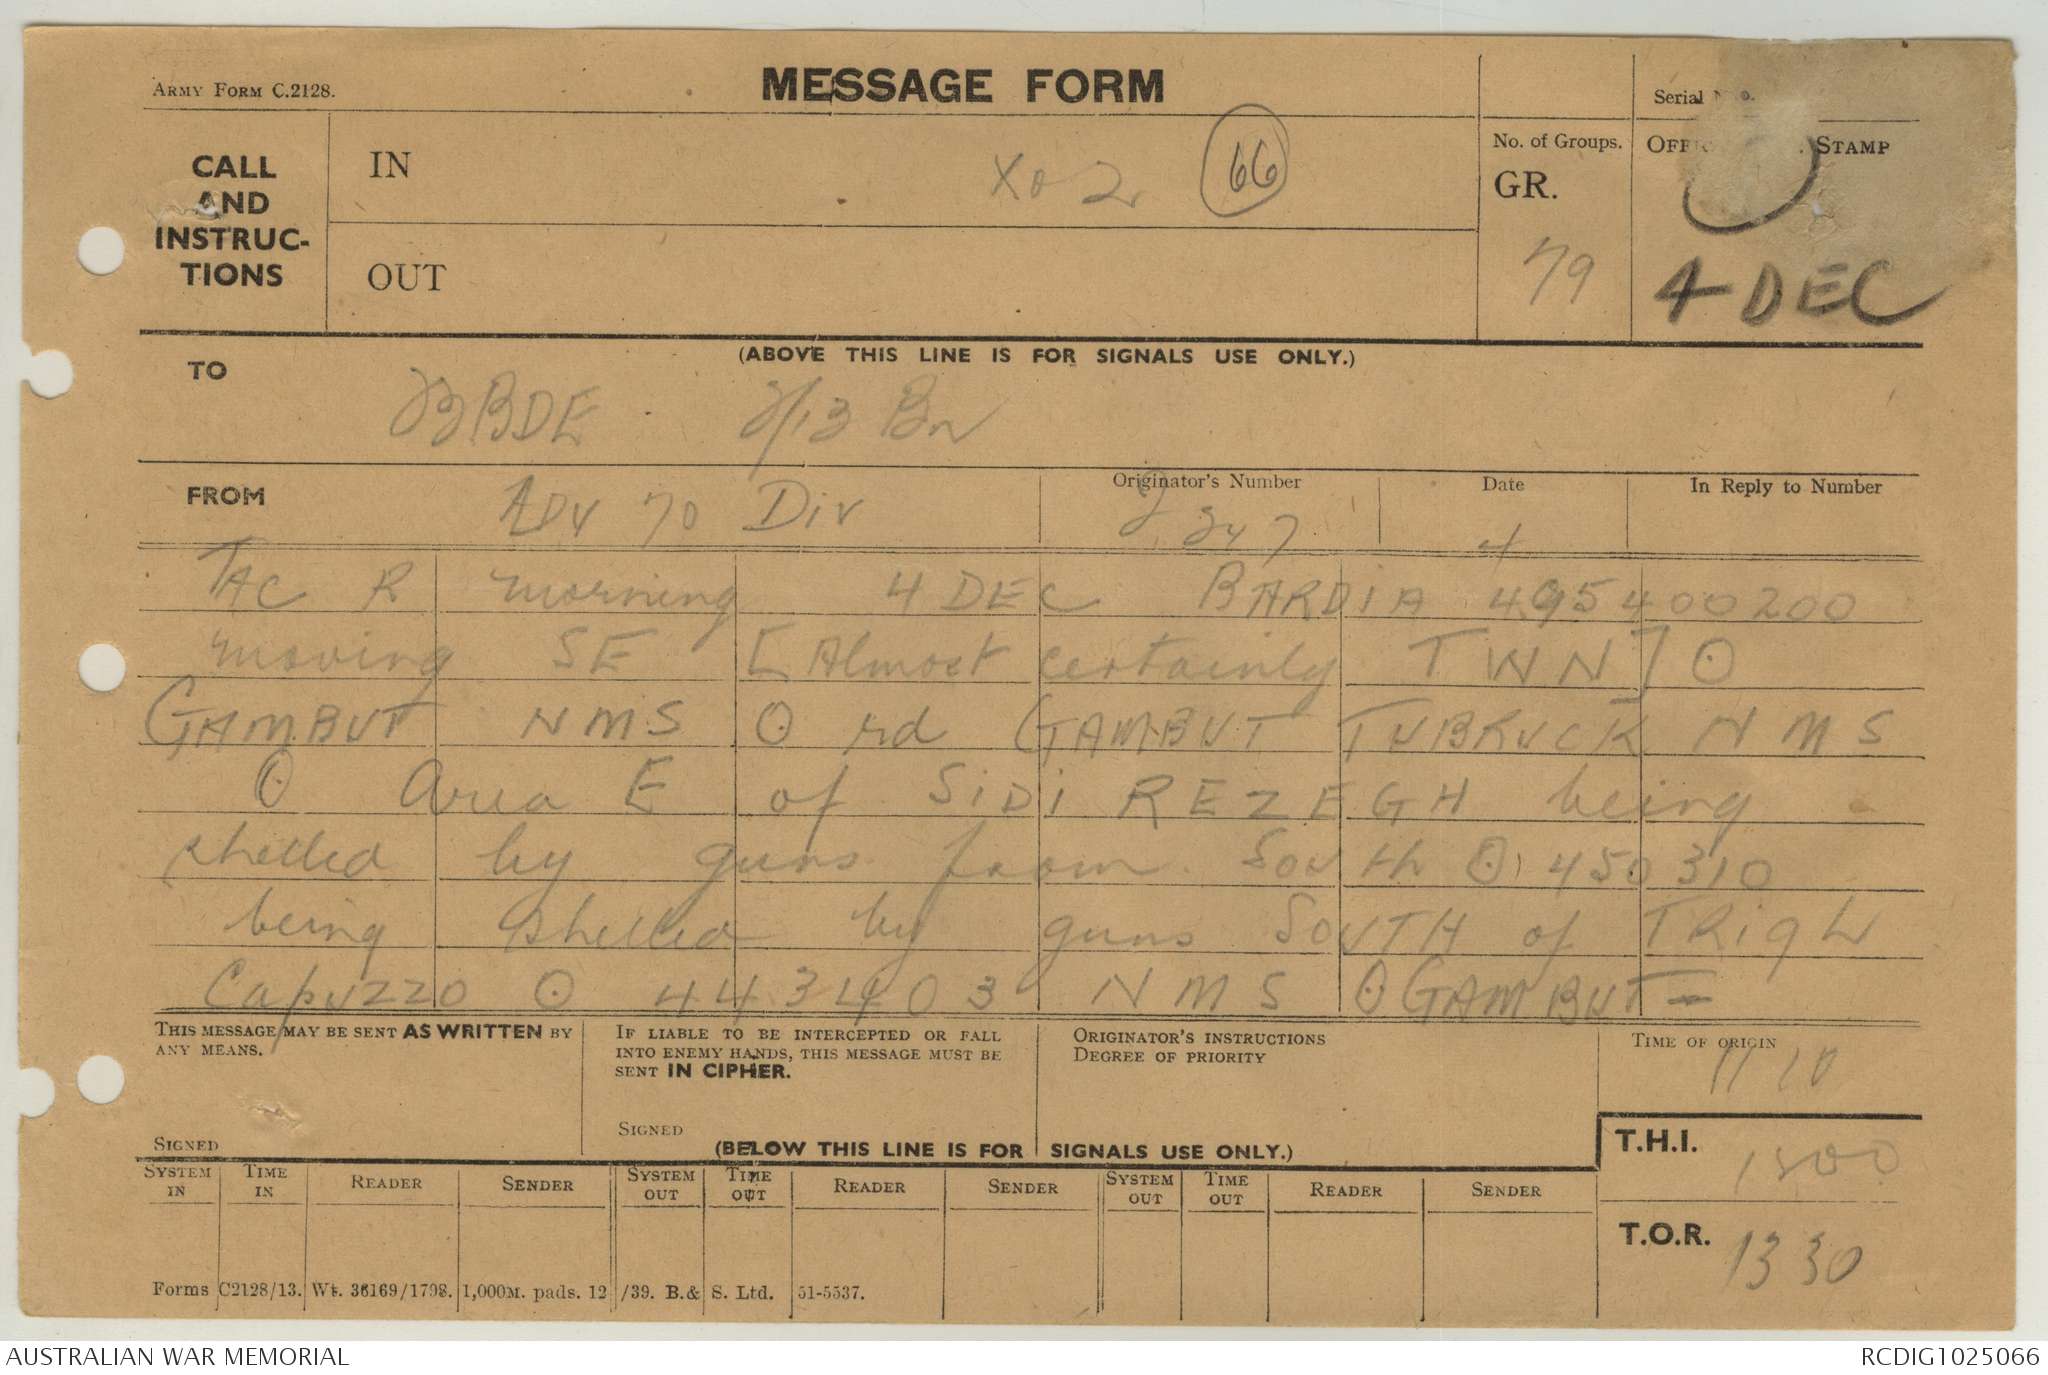 ARMY FORM C.2128.
MESSAGE FORM
Serial No.
CALL AND INSTRUC-TIONS
IN
Xo 2
66
No. of Groups.
GR.
79
OFFICE STAMP
4 DEC
OUT
(ABOVE THIS LINE IS FOR SIGNALS USE ONLY.)
TO
23 BDE 2/13 Bn
FROM
ADV 70 Div
Originator's Number
247
Date
4
In Reply to Number
TAC R morning 4 DEC BARDIA 495400200
moving SE [Almost certainly TWN] O
GAMBUT NMS O rd GAMBUT TUBRUCK NMS
O Area E of SIDI REZEGH being
shelled by guns from South O 450310
being shelled by guns SOUTH of TRIGH
Capuzzo O 443403 NMS O GAMBUT =
THIS MESSAGE MAY BE SENT AS WRITTEN BY
ANY MEANS.
SIGNED
IF LIABLE TO BE INTERCEPTED OR FALL
INTO ENEMY HANDS, THIS MESSAGE MUST BE
SENT IN CIPHER.
SIGNED
ORIGINATOR'S INSTRUCTIONS
DEGREE OF PRIORITY
TIME OF ORIGIN
1110
(BELOW THIS LINE IS FOR SIGNALS USE ONLY.)
T.H.I.
1300
SYSTEM IN TIME IN READER SENDER SYSTEM OUT TIME OUT READER SENDER SYSTEM OUT TIME OUT READER SENDER
T.O.R.
1330
Forms C2128/13. Wt. 36169/1798. 1,000M. pads. 12/39. B.& S. Ltd. 51-5537.
AUSTRALIAN WAR MEMORIAL
RCDIG1025066